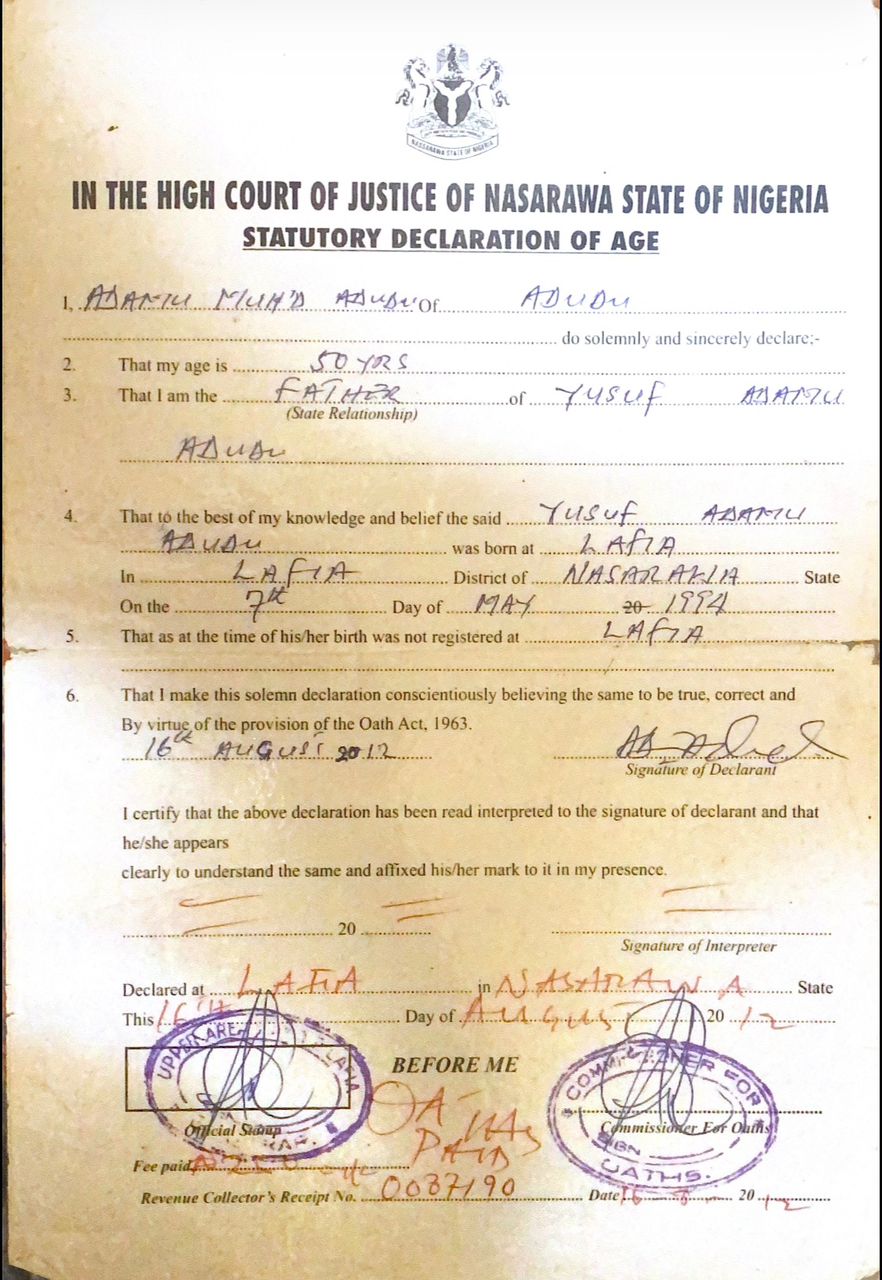 NASSARAWA STATE OF NIGERIA
IN THE HIGH COURT OF JUSTICE OF NASARAWA STATE OF NIGERIA
STATUTORY DECLARATION OF AGE
I, ADAMU MUH'D ADUDU Of ADUDU
do solemnly and sincerely declare;-
2. That my age is 50 YRS
3. That I am the FATHER of YUSUF ADAMU
(State Relationship)
ADUDU
4. That to the best of my knowledge and belief the said YUSUF ADAMU
ADUDU was born at LAFIA
In LAFIA District of NASARAWA State
On the 7th Day of MAY 20 1994
5. That as at the time of his/her birth was not registered at LAFIA
6. That I make this solemn declaration conscientiously believing the same to be true, correct and
By virtue of the provision of the Oath Act, 1963.
16th AUGUST 2012
Signature of Declarant
I certify that the above declaration has been read interpreted to the signature of declarant and that
he/she appears
clearly to understand the same and affixed his/her mark to it in my presence.
20
Signature of Interpreter
Declared at LAFIA in NASARAWA State
This 16TH Day of AUGUST 20 12
UPPER AREA LAFIA
BEFORE ME
COMMISSIONER FOR OATHS.
SIGN
Official Stamp
Commissioner For Oaths
PAID
Fee paid
Revenue Collector's Receipt No. 0037190 Date 16 8 20 12